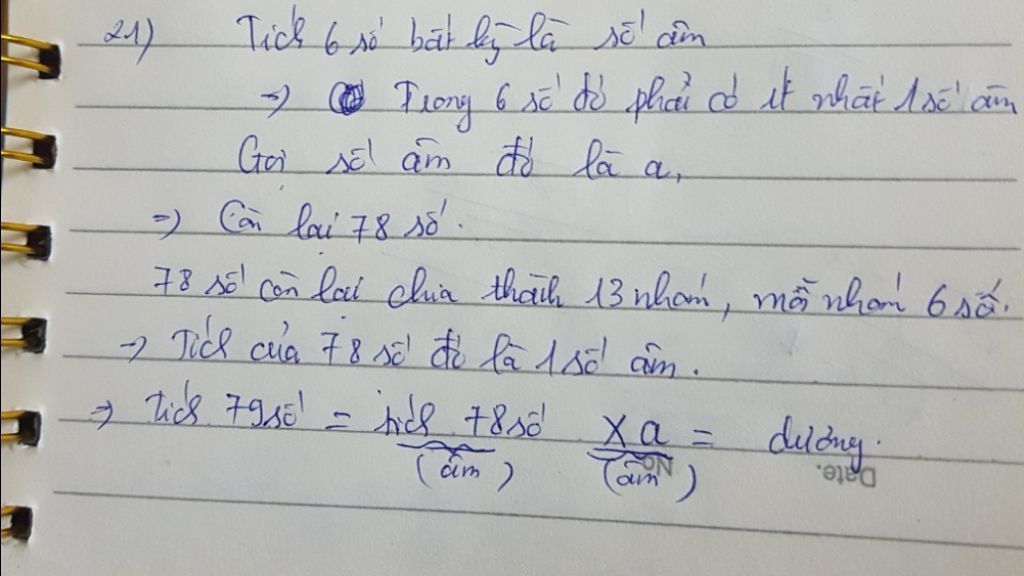 21) Tích 6 số bất kỳ là số âm
=> Trong 6 số đó phải có ít nhất 1 số âm
Gọi số âm đó là a,
=> Còn lại 78 số.
78 số còn lại chia thành 13 nhóm, mỗi nhóm 6 số.
=> Tích của 78 số đó là 1 số âm.
=> Tích 79 số = tích 78 số x a = dương.
(âm) (âm)
No
Date.